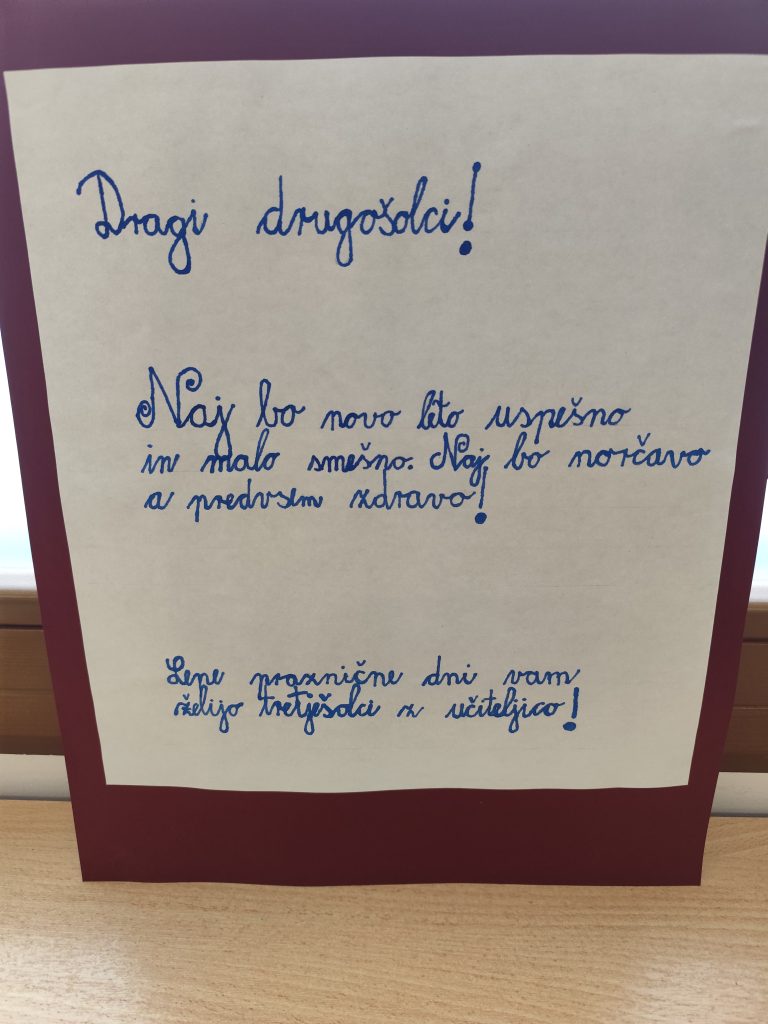 Dragi drugošolci!
Naj bo novo leto uspešno
in malo smešno. Naj bo norčavo
a predvsem zdravo!
Lepe praznične dni vam
želijo tretješolci z učiteljico!